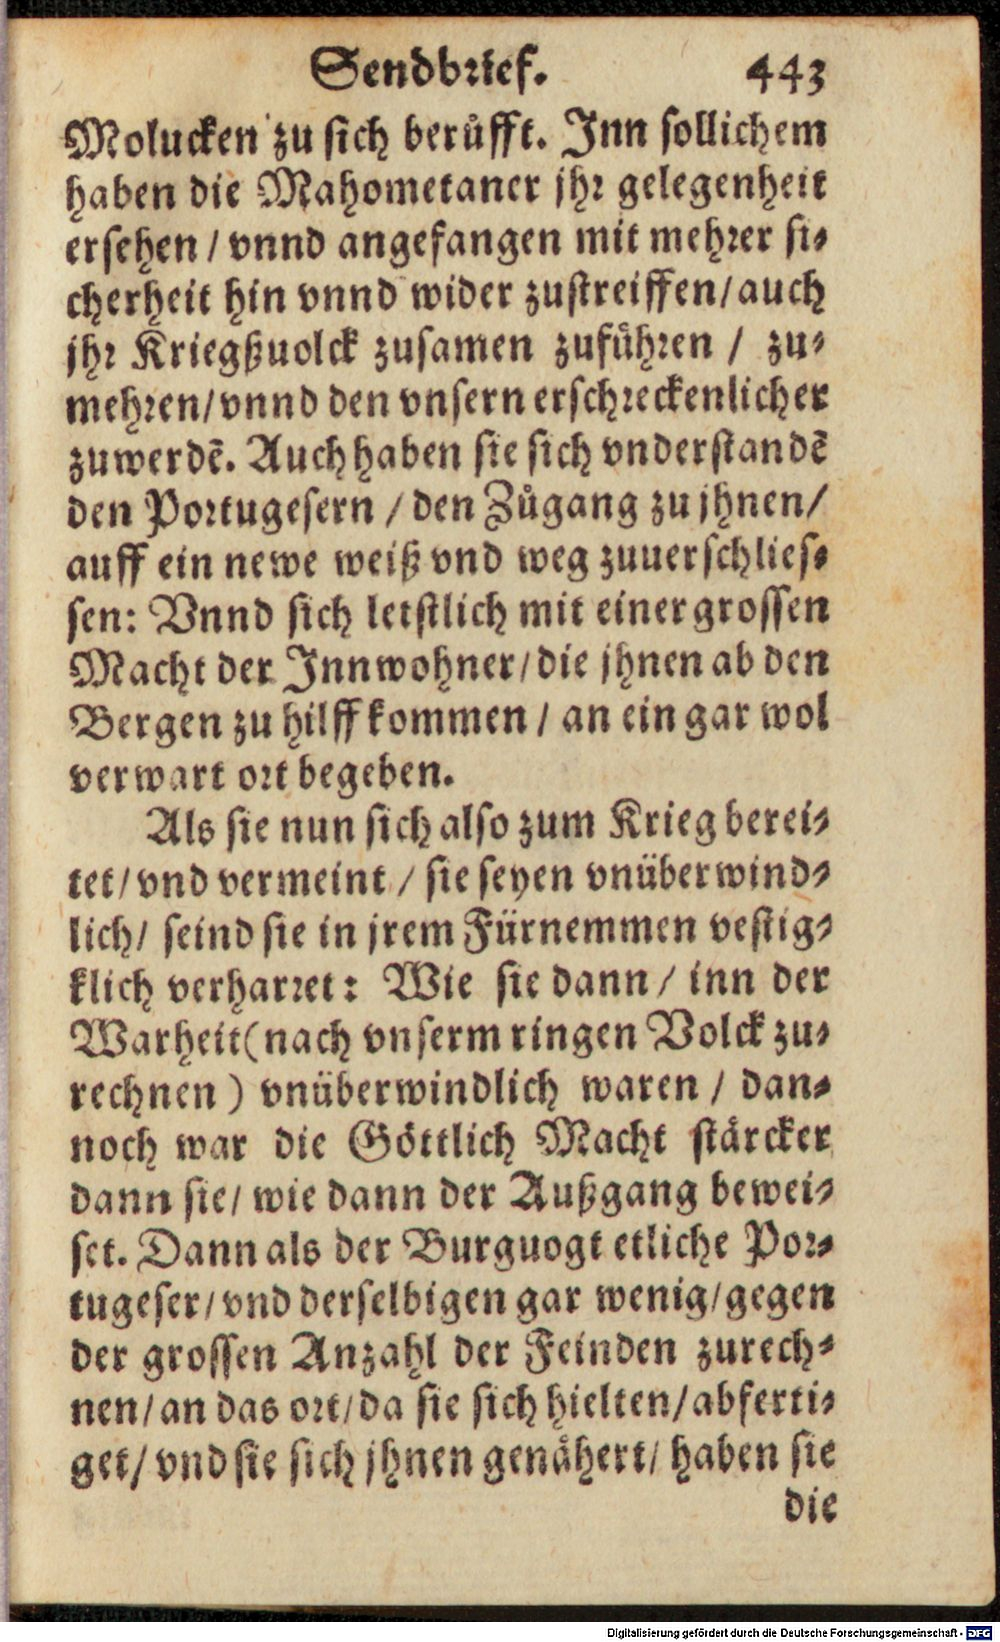 Sendbrief. 443
Molucken zu sich berůfft. Inn sollichem
haben die Mahometaner jhr gelegenheit
ersehen / vnnd angefangen mit mehrer si-
cherheit hin vnnd wider zustreiffen / auch
jhr Kriegßuolck zusamen zuführen / zu-
mehren / vnnd den vnsern erschreckenlicher
zuwerdē. Auch haben sie sich vnderstandē
den Portugesern / den Zůgang zu jhnen /
auff ein newe weiß vnd weg zuuerschlies-
sen: Vnnd sich letstlich mit einer grossen
Macht der Innwohner / die jhnen ab den
Bergen zu hilff kommen / an ein gar wol
verwart ort begeben.
Als sie nun sich also zum Krieg berei-
tet / vnd vermeint / sie seyen vnüberwind-
lich / seind sie in jrem Fürnemmen vestig-
klich verharret: Wie sie dann / inn der
Warheit (nach vnserm ringen Volck zu-
rechnen) vnüberwindlich waren / dan-
noch war die Göttlich Macht stärcker
dann sie / wie dann der Außgang bewei-
set. Dann als der Burguogt etliche Por-
tugeser / vnd derselbigen gar wenig / gegen
der grossen Anzahl der Feinden zurech-
nen / an das ort / da sie sich hielten / abferti-
get / vnd sie sich jhnen genähert / haben sie
die
Digitalisierung gefördert durch die Deutsche Forschungsgemeinschaft - DFG